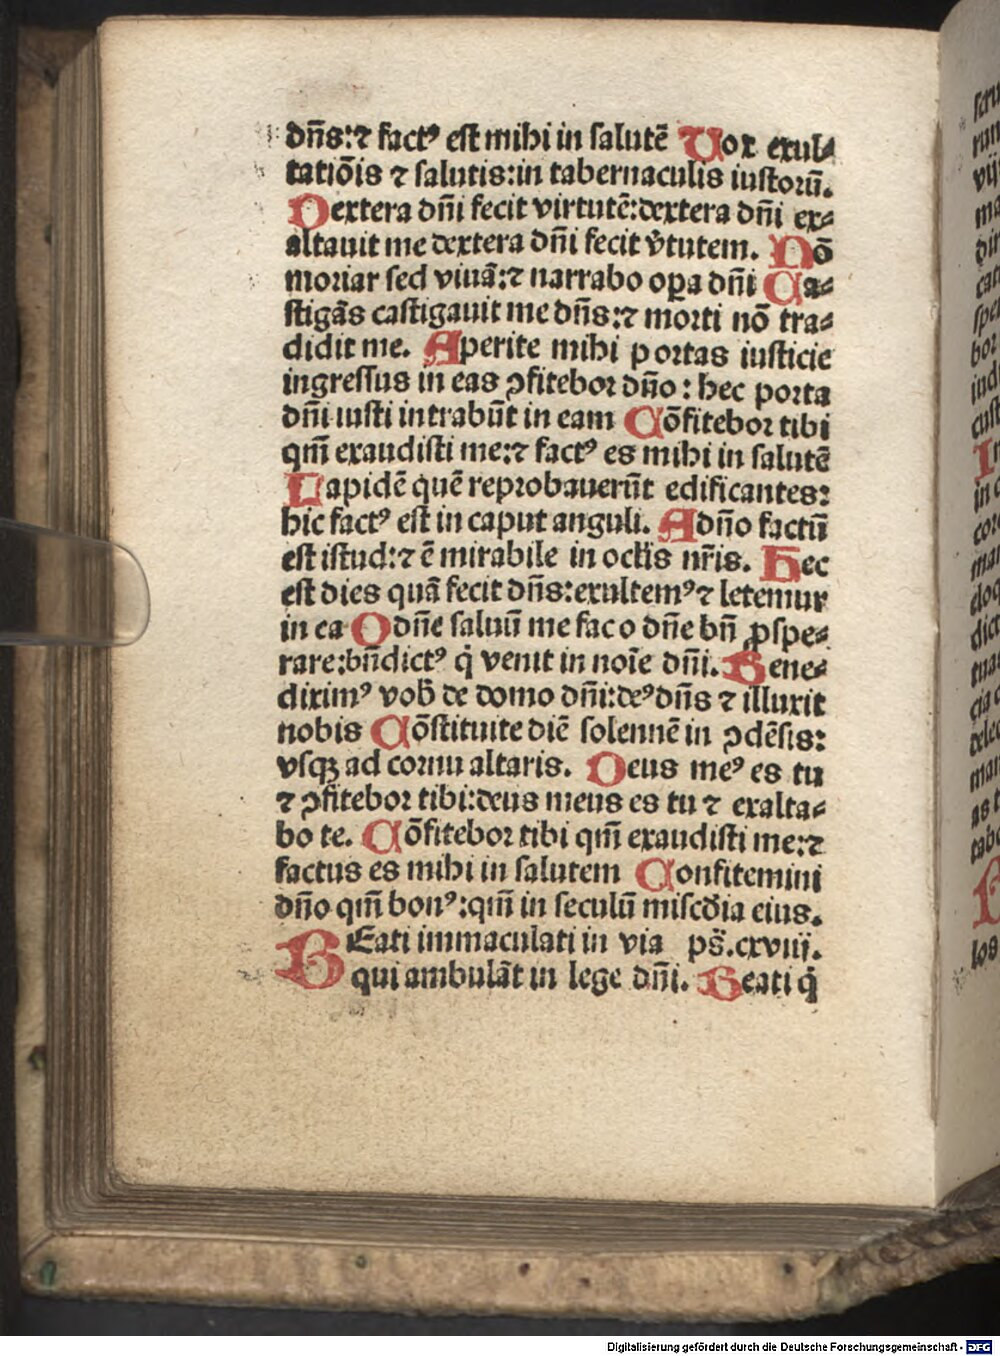 dn̄s:⁊ fact⁹ est mihi in salutē Vox exul⸗
tatiōis ⁊ salutis:in tabernaculis iustorū.
Dextera dn̄i fecit virtutē:dextera dn̄i ex⸗
altauit me dextera dn̄i fecit v̄tutem. Nō
moriar sed viuā:⁊ narrabo oꝑa dn̄i Ca⸗
stigās castigauit me dn̄s:⁊ morti nō tra⸗
didit me. Aperite mihi portas iusticie
ingressus in eas ꝯfitebor dn̄o : hec porta
dn̄i iusti intrabūt in eam Cōfitebor tibi
qm̄ exaudisti me:⁊ fact⁹ es mihi in salutē
Lapidē quē reprobauerūt edificantes:
hic fact⁹ est in caput anguli. A dn̄o factū
est istud:⁊ ē mirabile in ocl̄is nr̄is. Hec
est dies quā fecit dn̄s:exultem⁹ ⁊ letemur
in ea O dn̄e saluū me fac o dn̄e bn̄ ꝓspe⸗
rare:bn̄dict⁹ q̇ venit in noīe dn̄i. Bene⸗
dixim⁹ vob̄ de domo dn̄i:de⁹ dn̄s ⁊ illuxit
nobis Cōstituite diē solennē in ꝯdēsis:
vsqꝫ ad cornu altaris. Deus me⁹ es tu
⁊ ꝯfitebor tibi:deus meus es tu ⁊ exalta⸗
bo te. Cōfitebor tibi qm̄ exaudisti me:⁊
factus es mihi in salutem Confitemini
dn̄o qm̄ bon⁹:qm̄ in seculū misc̄dia eius.
BEati immaculati in via ps̄.cxviij.
qui ambulāt in lege dn̄i. Beati q̇
Digitalisierung gefördert durch die Deutsche Forschungsgemeinschaft - DFG